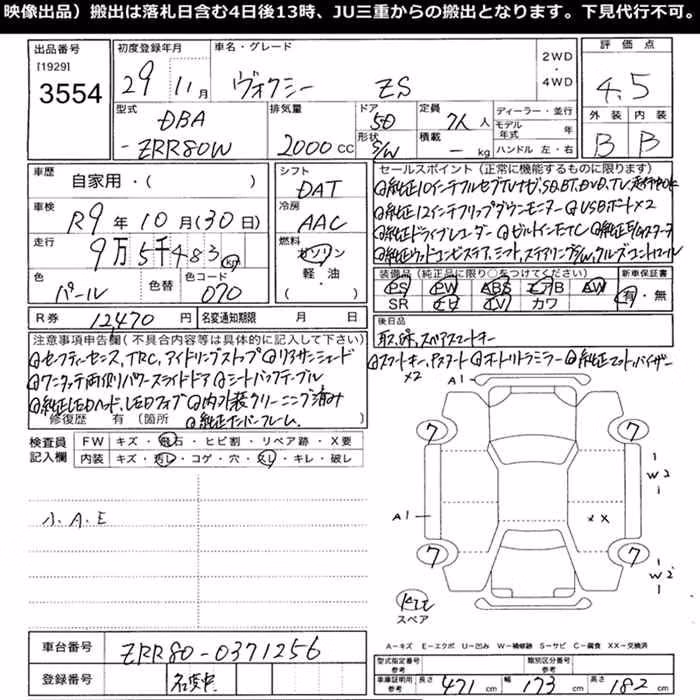 映像出品）搬出は落札日含む4日後13時、JU三重からの搬出となります。下見代行不可。
出品番号
[1929]
3554
初度登録年月
29年11月
車名・グレード
ヴォクシー ZS
2WD
・
4WD
評価点
4.5
外装 内装
B B
型式
DBA
-ZRR80W
排気量
2000 CC
ドア
5D
形状
S/W
定員
7人 人
積載
- kg
ディーラー・並行
モデル年式 年
ハンドル 左・右
車歴
自家用・( )
車検
R9年10月(30日)
走行
9万5千483 km
色
パール
色替
色コード
070
シフト
DAT
冷房
AAC
燃料
ガソリン
軽・油
( )
R券 12470円
名変通知期限 月 日
セールスポイント（正常に機能するものに限ります）
◎純正10インチフルセグTVナビ,SD,BT,DVD,TV,走行中OK
◎純正12インチフリップダウンモニター ◎USBポート×2
◎純正ドライブレコーダー ◎ビルトインETC
装備品（純正品に限り○をつけてください）
PS PW ABS エアB AW
SR ナビ TV カワ
新車保証書
有・無
後日品
取,保,スペアスマートキー
◎スマートキー,Pスタート ◎オートリトラミラー ◎純正マット,バイザー
×2
注意事項申告欄(不具合内容等は具体的に記入して下さい)
◎セーフティーセンス,TRC,アイドリングストップ ◎リアサンシェード
◎ワンタッチ両側パワースライドドア ◎シートバックテーブル
◎純正LEDヘッド,LEDフォグ ◎内外装クリーニング済み
修復歴 有(箇所 ◎純正ナンバーフレーム )
検査員
記入欄
FW キズ・飛石・ヒビ割・リペア跡・X要
内装 キズ・汚レ・コゲ・穴・スレ・キレ・破レ
小.A.E
A1
7
7
7
7
A1
W2
W2
××
スペア
A-キズ E-エクボ U-凹み W-補修跡 S-サビ C-腐食 XX-交換済
車台番号 ZRR80-0371256
登録番号 名変中
型式指定番号 参考
類別区分番号 参考
車庫証明用 参考
長さ 471 cm 幅 173 cm 高さ 182 cm